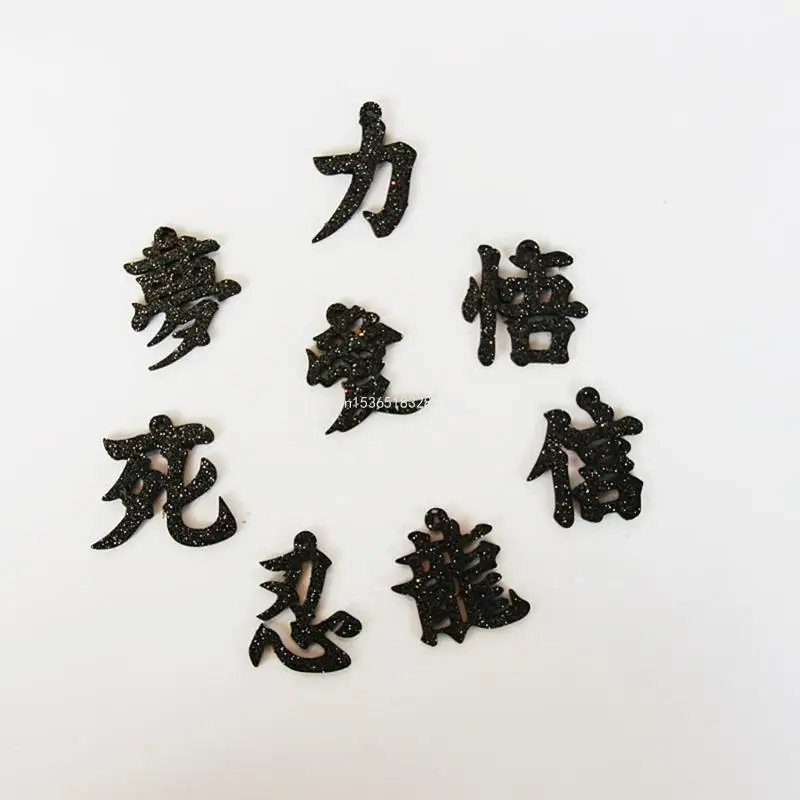 力
夢
悟
愛
信
死
忍
龍